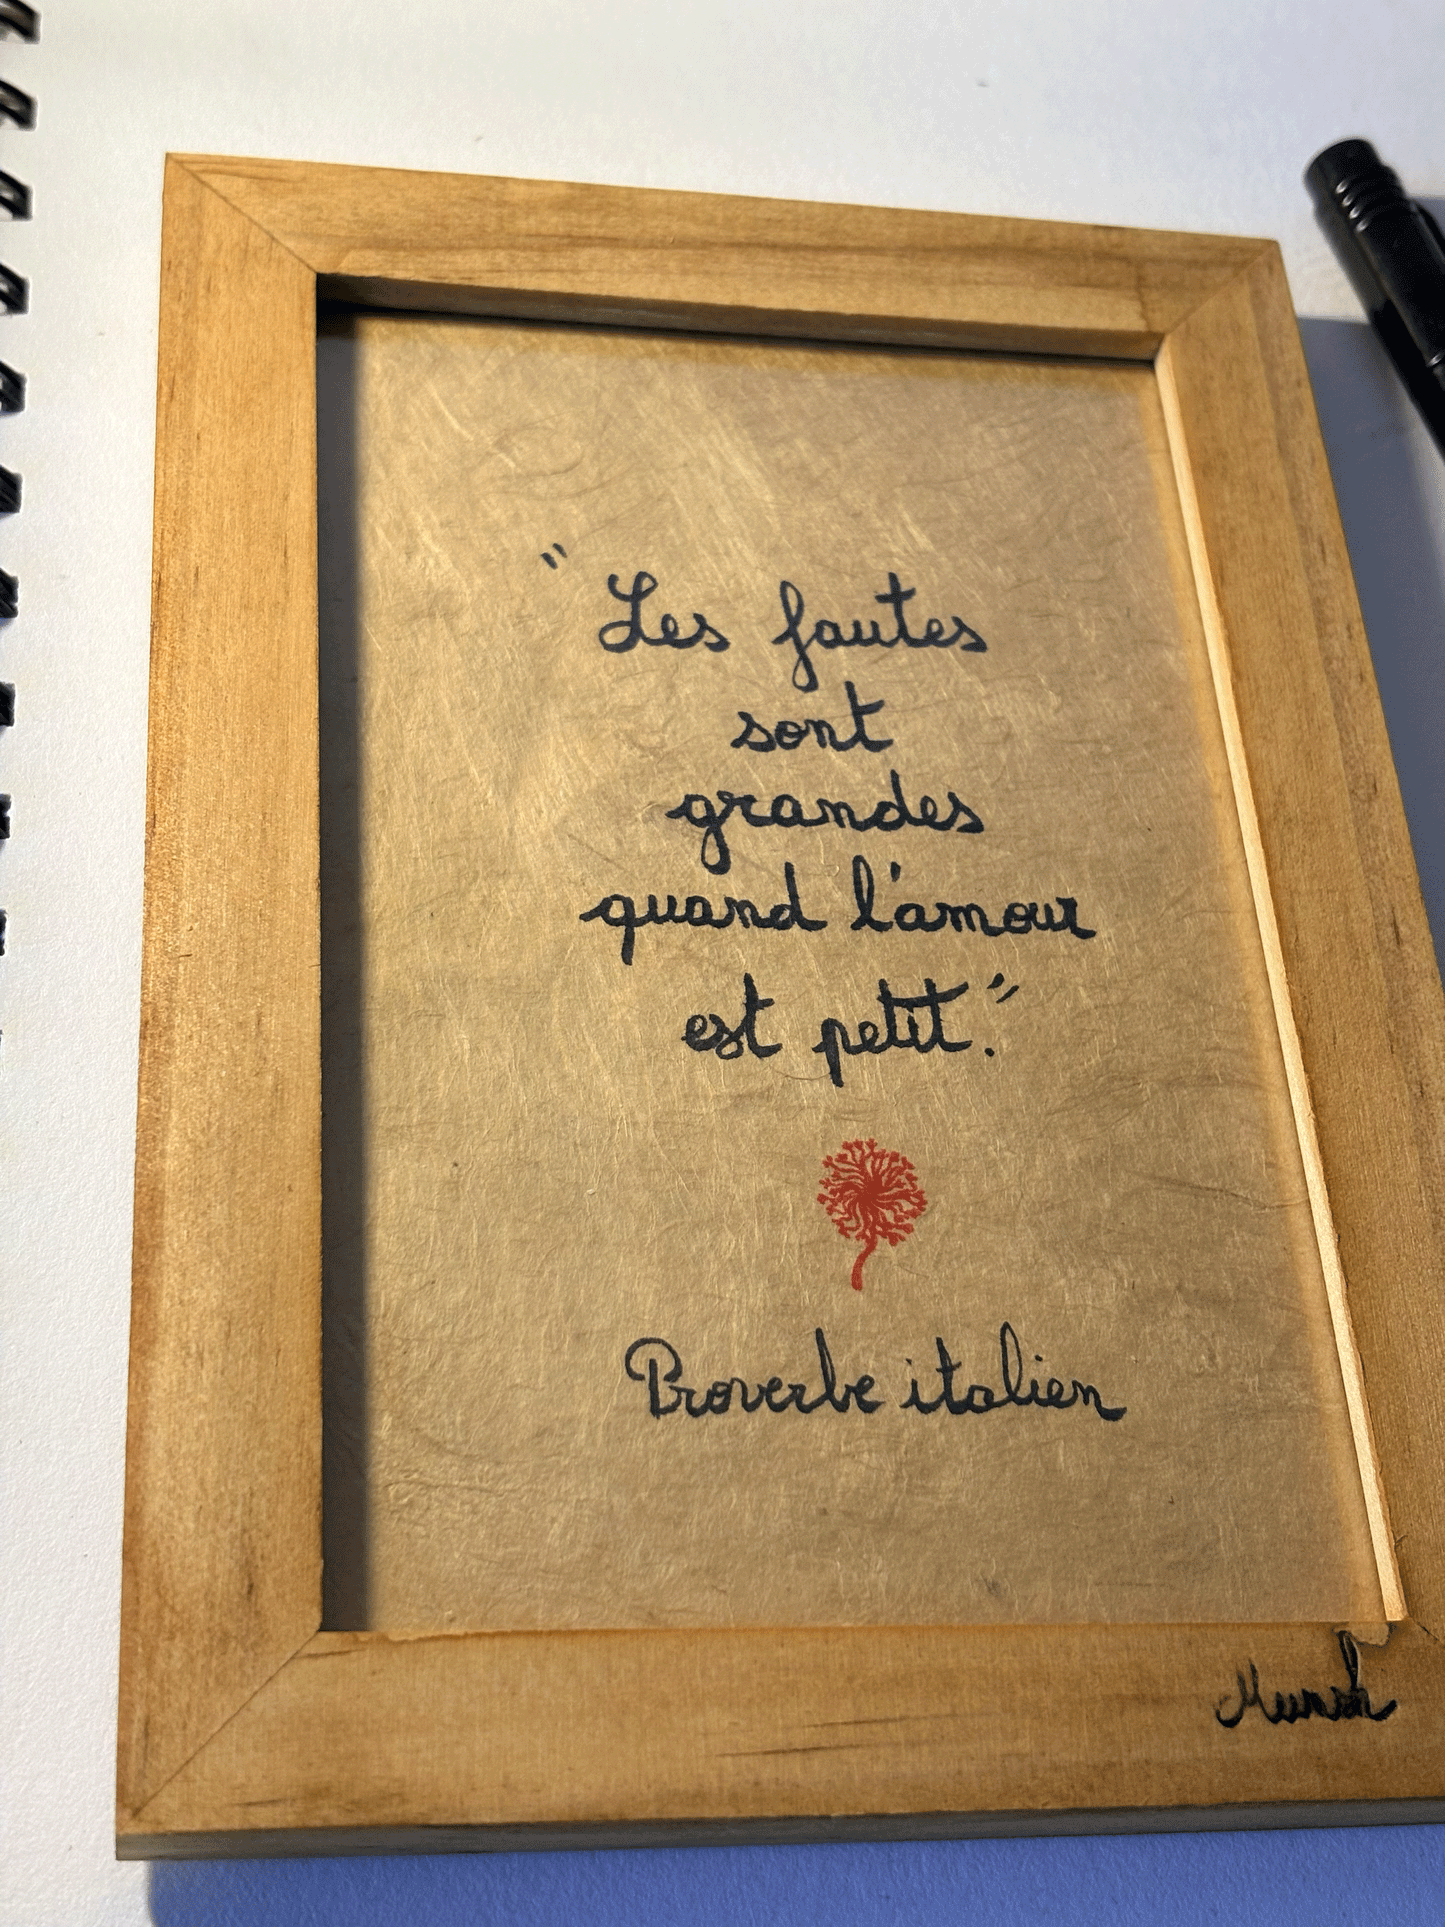 " Les fautes
sont
grandes
quand l'amour
est petit."
Proverbe italien